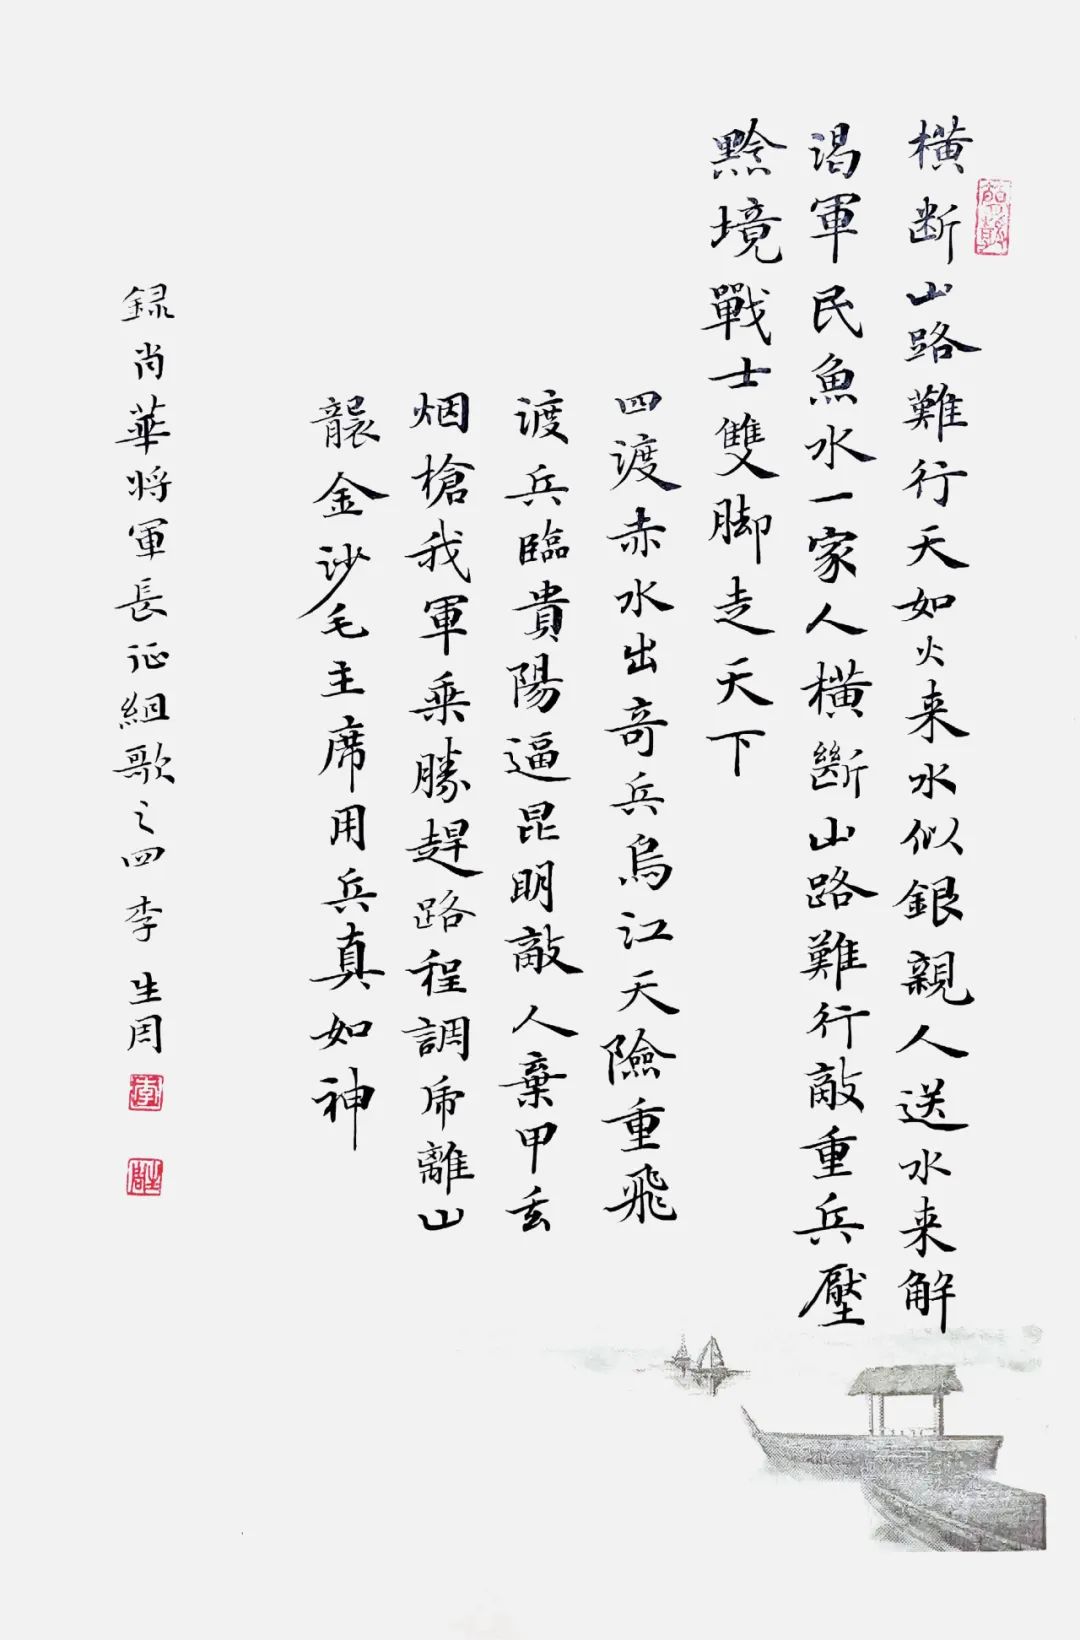 横断山路難行天如火来水似銀親人送水来解
渴軍民魚水一家人横斷山路難行敵重兵壓
黔境戰士雙脚走天下
四渡赤水出奇兵烏江天險重飛
渡兵臨貴陽逼昆明敵人棄甲丢
烟槍我軍乘勝趕路程調虎離山
襲金沙毛主席用兵真如神
録肖華将軍長征組歌之四李生周
李
生周